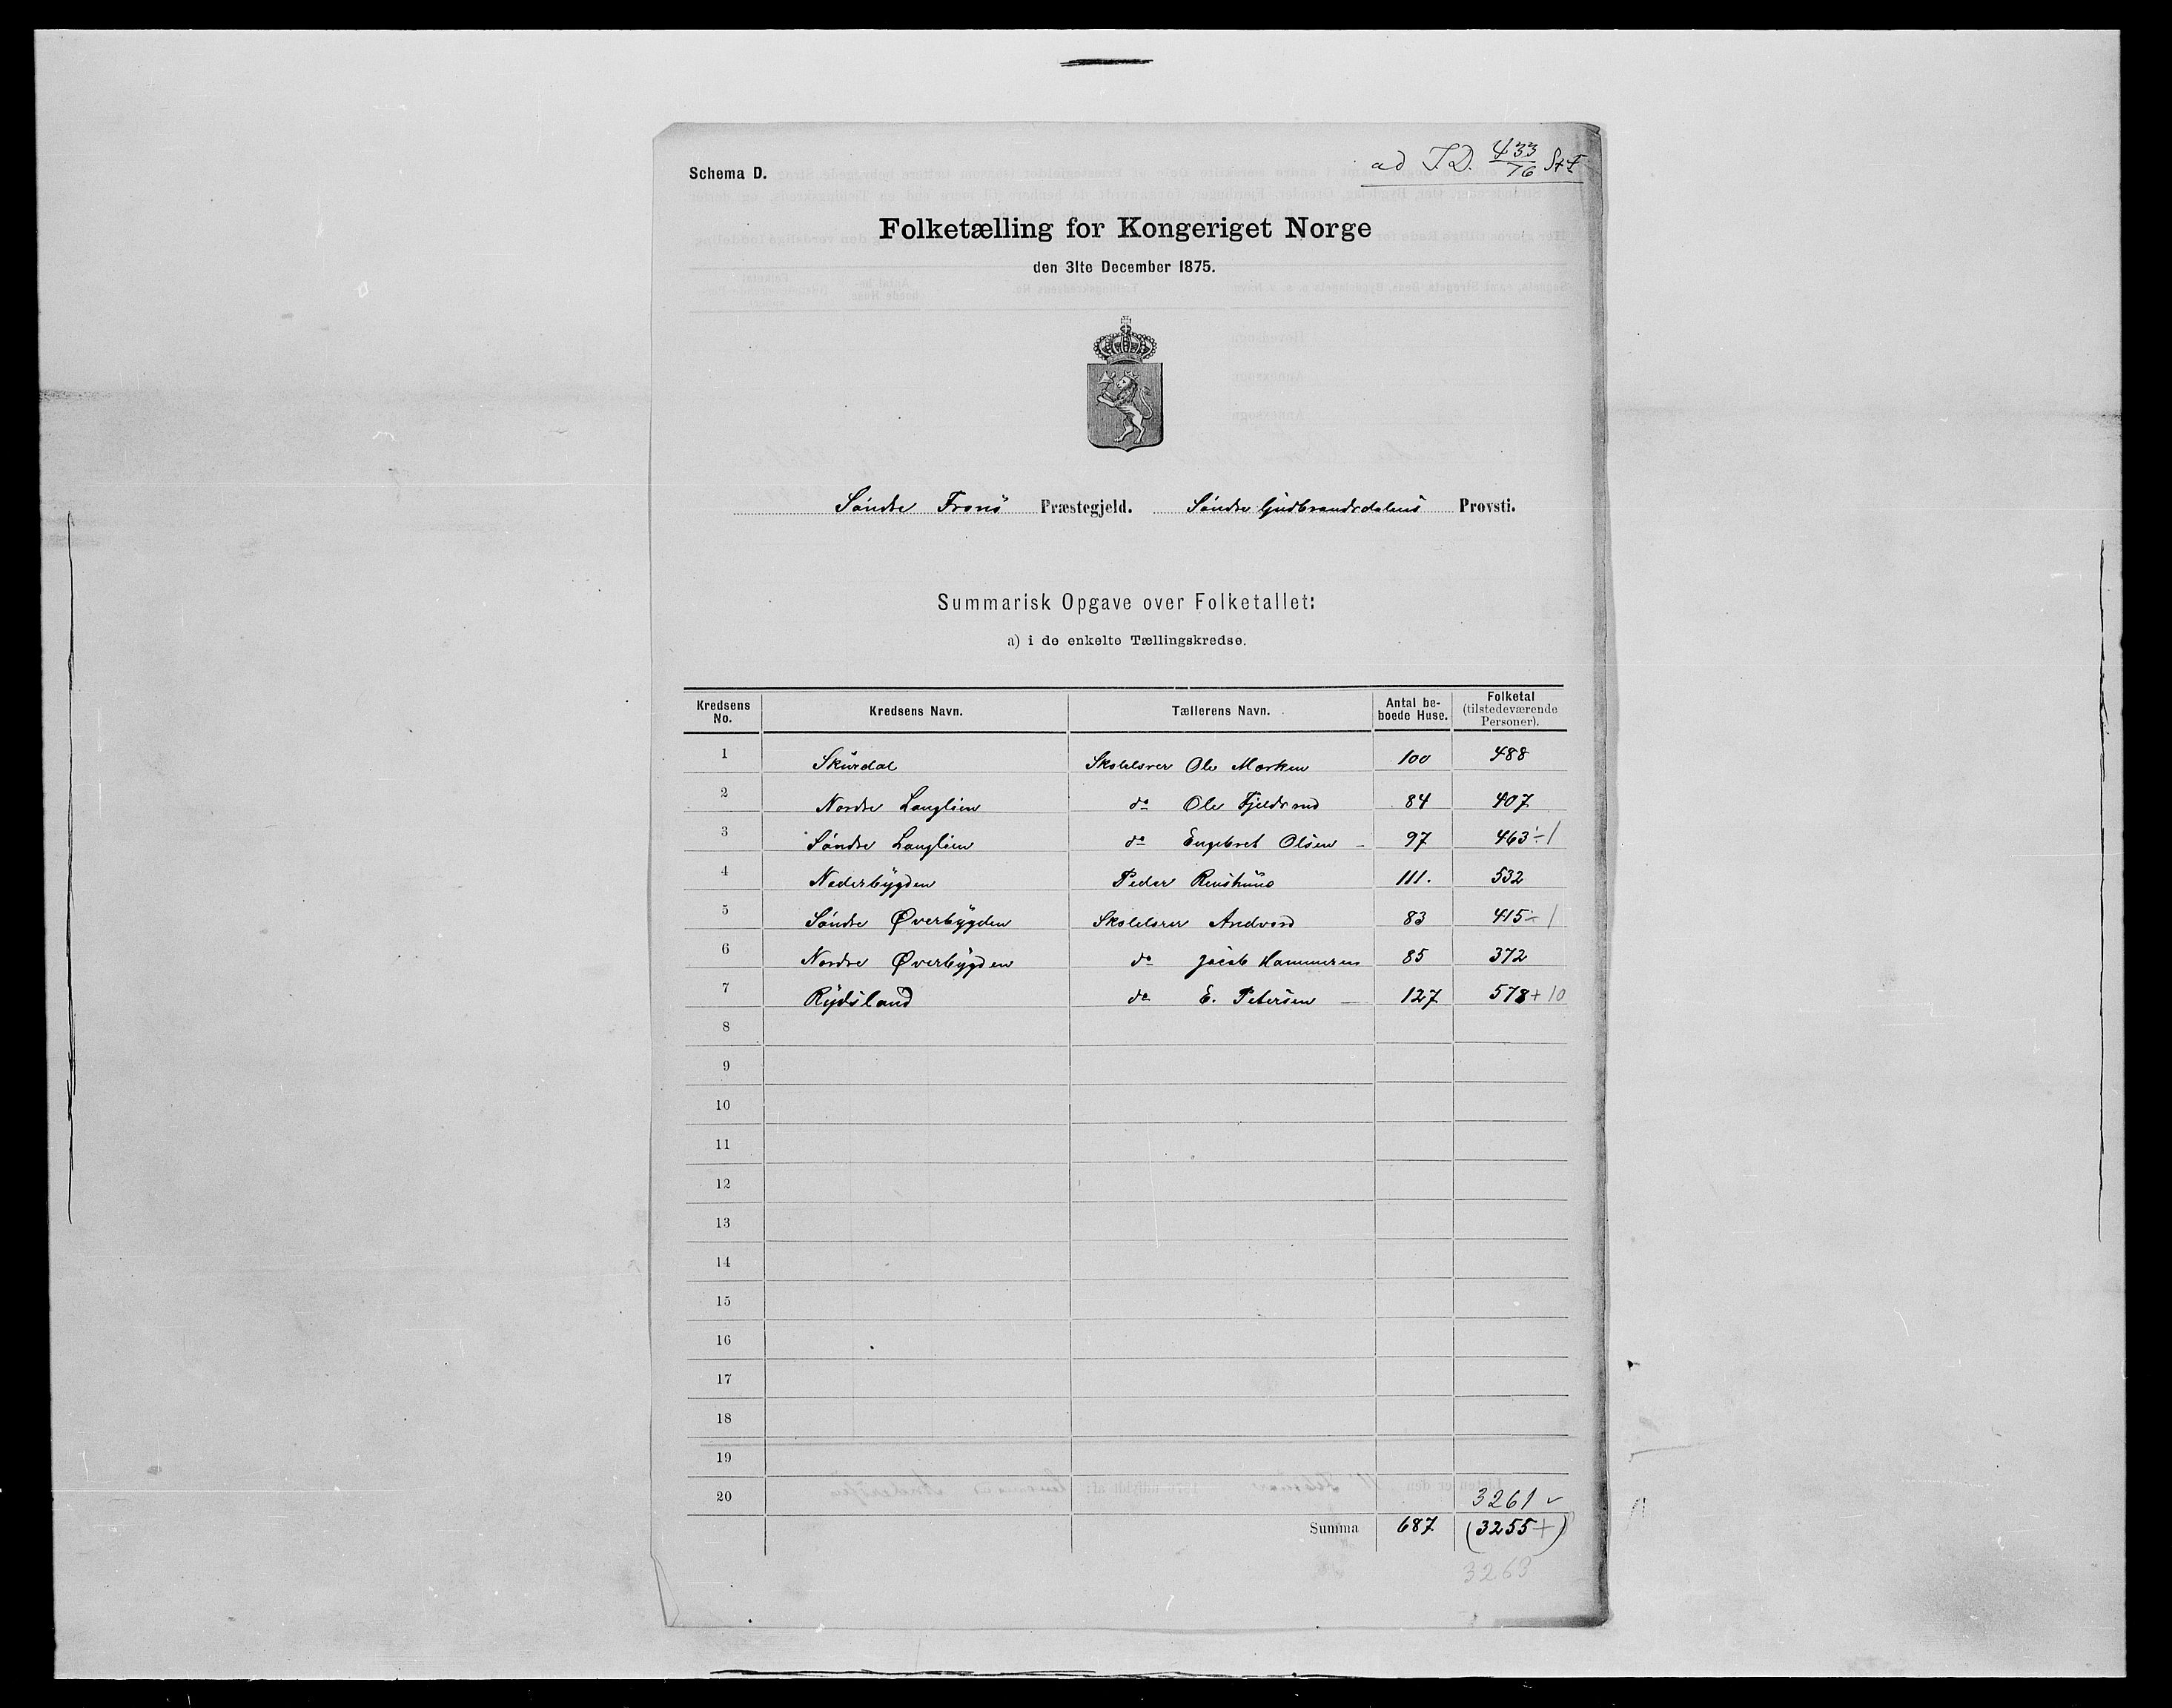 Schema D.
ad J.D. 433/76 StF
Folketælling for Kongeriget Norge
den 31te December 1875.
Søndre Frons Præstegjeld. Søndre Gudbrandsdalens Provsti.
Summarisk Opgave over Folketallet:
a) i de enkelte Tællingskredse.
Kredsens No. Kredsens Navn. Tællerens Navn. Antal beboede Huse. Folketal (tilstedeværende Personer).
1 Skurdal Skolelærer Ole Morken 100 488
2 Nordre Langlien do Ole Fjeldsrud 84 407
3 Søndre Langlien do Engebret Olsen – 97 463 ÷ 1
4 Nederbygden Peder 111. 532
5 Søndre Øverbygden Skolelærer Andvord 83 415 ÷ 1
6 Nordre Øverbygden do Jacob Hammeren 85 372
7 Rydsland do E. Petersen — 127 578 + 10
8
9
10
11
12
13
14
15
16
17
18
19
20 3261 ✓
Summa 687 (3255+)
3263